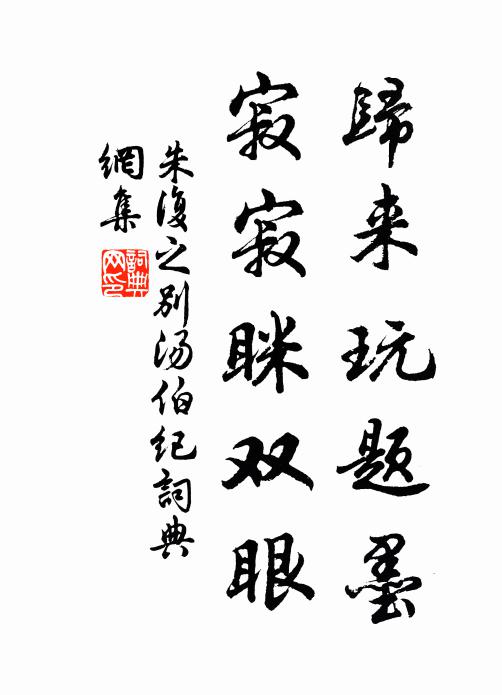 歸来玩题墨
寂寂眯双眼
朱復之别汤伯纪詞典
網集
詞典
网印